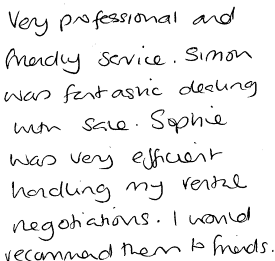 Very professional and
friendly service. Simon
was fantastic dealing
with sale. Sophie
was very efficient
handling my rental
negotiations. I would
recommend them to friends.